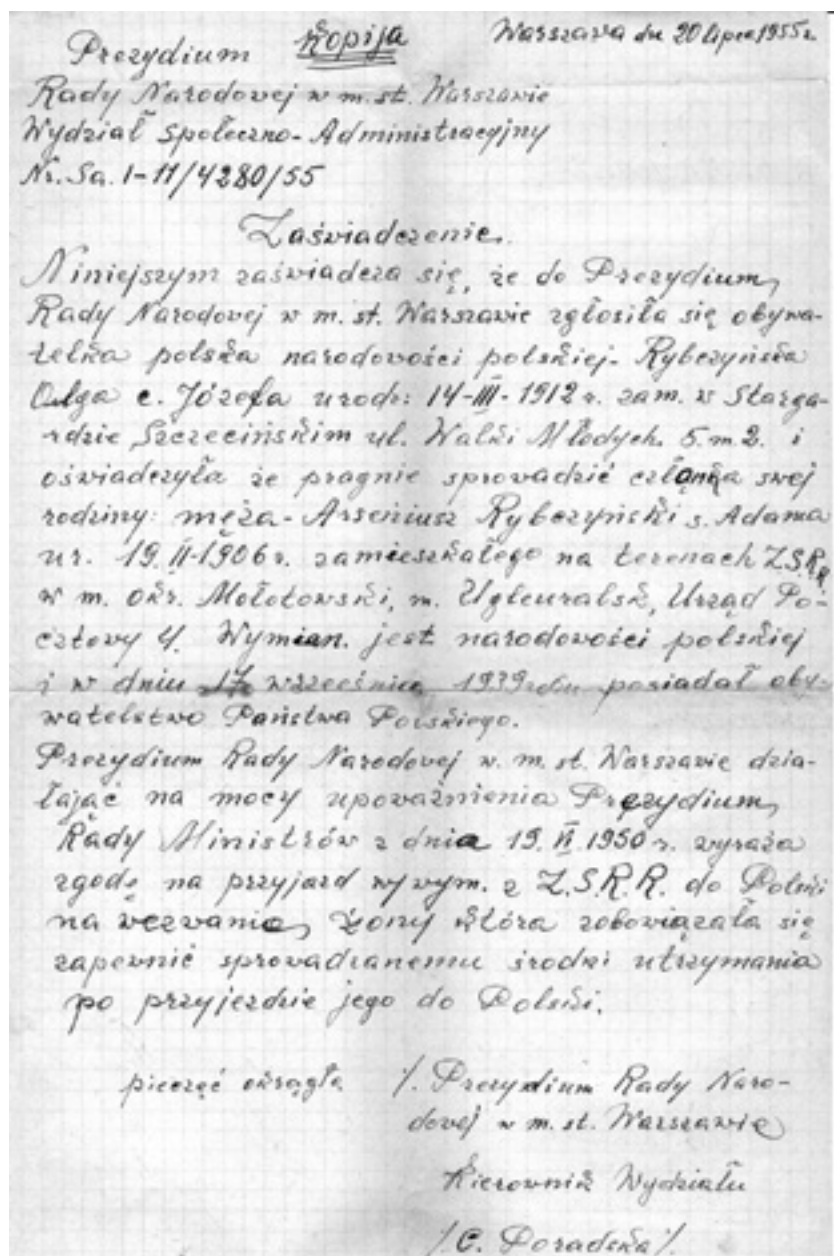 Kopija Warszawa dn 20 lipca 1955 r.
Prezydium
Rady Narodovej w m. st. Warszawie
Wydział Społeczno-Administracyjny
Nr. Sa. I-11/4280/55
Zaświadczenie.
Niniejszym zaświadcza się, że do Prezydium
Rady Narodovej w m. st. Warszawie zgłosiła się obywa-
telka polska narodovości polskiej - Rybczyńska
Olga c. Józefa urodz: 14-III-1912 r. zam. w Starga-
rdzie Szczecińskim ul. Walki Młodych. 5. m. 2. i
oświadczyła że pragnie sprovadzić członka swej
rodziny: męża - Arseniusz Rybczyński s. Adama
ur. 19. II-1906 r. zamieszkałego na terenach Z.S.R.R.
w m. Okr. Mołotowski, m. Ugleuralsk, Urząd Po-
cztovy 4. Wymian. jest narodovości polskiej
i w dniu 17 wrzesśnia 1939 roku posiadał oby-
watelstwo Państwa Polskiego.
Prezydium Rady Narodovej w. m. st. Warszawie dzia-
łając na mocy upovażnienia Prezydium
Rady Ministrów z dnia 19. VI. 1950 r. wyraża
zgodę na przyjazd w/vym. z Z.S.R.R. do Polski
na vezvanie żony która zobowiązała się
zapevnić sprovadzanemu środki utrzymania
po przyjezdzie jego do Polski.
pieczęć okrągła /. Prezydium Rady Naro-
dovej w m. st. Warszawie
Kierownik Wydziału
/C. Poradska/